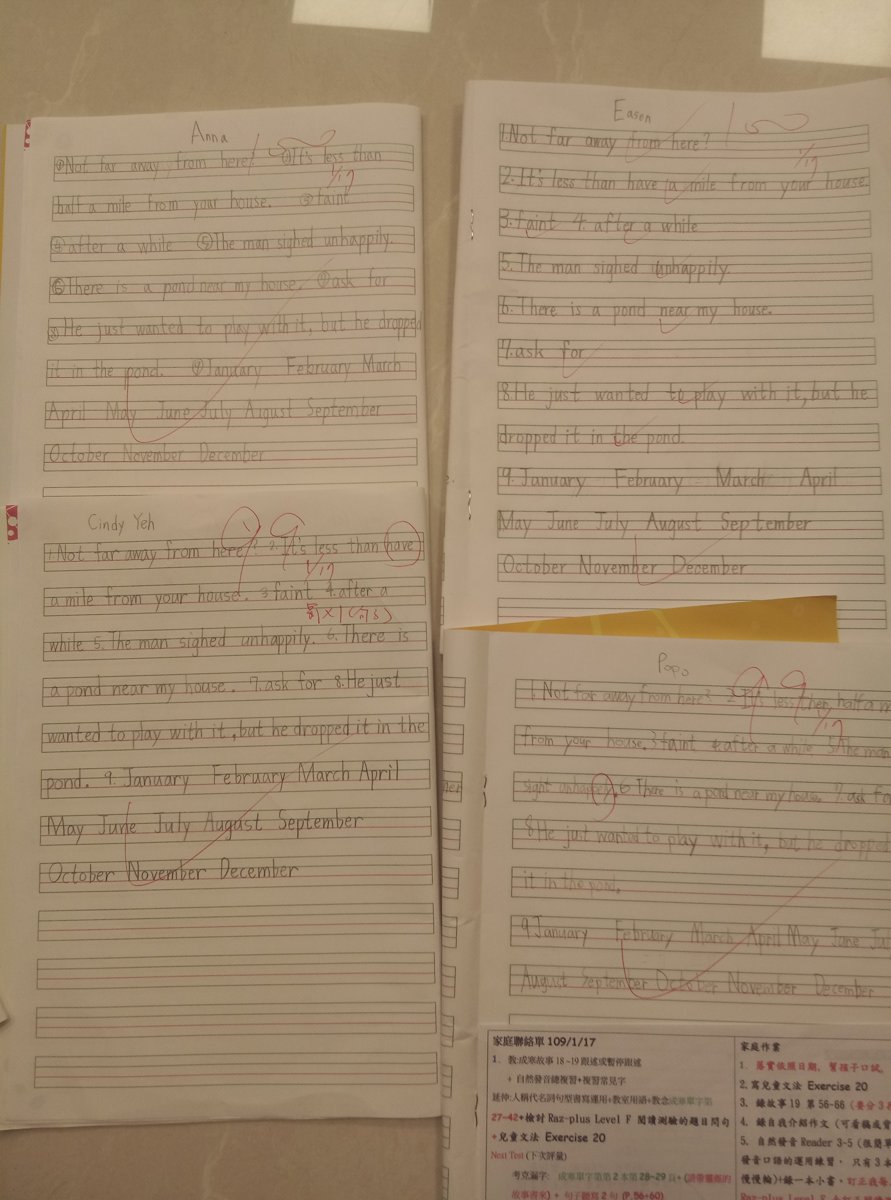 Anna
①Not far away from here? ②It's less than
1/17
half a mile from your house. ③faint
④after a while ⑤The man sighed unhappily.
⑥There is a pond near my house. ⑦ask for
⑧He just wanted to play with it, but he dropped
it in the pond. ⑨January February March
April May June July August September
October November December
Eason
1.Not far away from here?
1/17
2.It's less than have a mile from your house.
3.faint 4.after a while
5.The man sighed unhappily.
6.There is a pond near my house.
7.ask for
8.He just wanted to play with it, but he
dropped it in the pond.
9.January February March April
May June July August September
October November December
Cindy Yeh
1.Not far away from here? 2.It's less than have
1/17
a mile from your house. 3.faint 4.after a
while 5.The man sighed unhappily. 6.There is
a pond near my house. 7.ask for 8.He just
wanted to play with it, but he dropped it in the
pond. 9.January February March April
May June July August September
October November December
Popo
1.Not far away from here? 2.It's less then half a m
1/17
from your house. 3.faint 4.after a while 5.The man
sight unhappily. 6.There is a pond near my house. 7.ask fo
8.He just wanted to play with it, but he dropped
it in the pond.
9.January February March April May June Ju
August September October November December
家庭聯絡單 109/1/17
1. 教:成寒故事 18~19 跟述或暫停跟述
+ 自然發音總複習+複習常見字
延伸:人稱代名詞句型書寫運用+教室用語+教念成寒單字第
27~42+檢討 Raz-plus Level F 閱讀測驗的題目問句
+兒童文法 Exercise 20
Next Test (下次評量)
考克漏字: 成寒單字第第 2 本第 28~29 頁+
故事書來) + 句子聽寫 2 句 (P.56+60)
家庭作業
1. 落實依照日期, 幫孩子口試,
2. 寫兒童文法 Exercise 20
3. 錄故事 19 第 56-66
4. 錄自我介紹作文
5. 自然發音 Reader 3~5
發音口語的運用練習, 只有 3 本
慢慢輪)+錄一本小書,